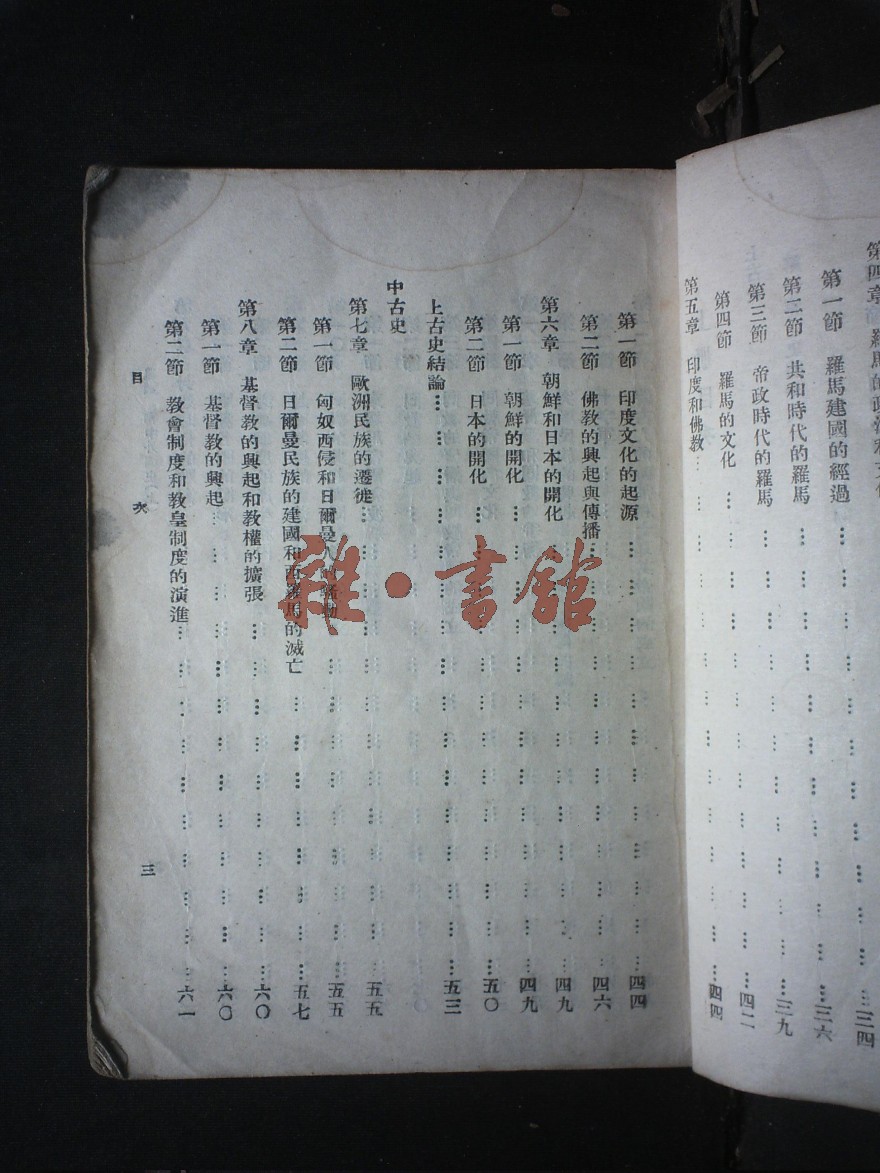 第四章 羅馬的政治和文化
第一節 羅馬建國的經過……三六
第二節 共和時代的羅馬……三九
第三節 帝政時代的羅馬
第四節 羅馬的文化……四二
第五章 印度和佛教……四四
第一節 印度文化的起源……四四
第二節 佛教的興起與傳播……四六
第六章 朝鮮和日本的開化……四九
第一節 朝鮮的開化……四九
第二節 日本的開化……五〇
上古史結論……五三
中古史
第七章 歐洲民族的遷徙……五五
第一節 匈奴西侵和日爾曼人的……五五
第二節 日爾曼民族的建國和西羅馬的滅亡……五七
第八章 基督教的興起和教權的擴張……六〇
第一節 基督教的興起……六〇
第二節 教會制度和教皇制度的演進……六一
目次
三
雜·書館